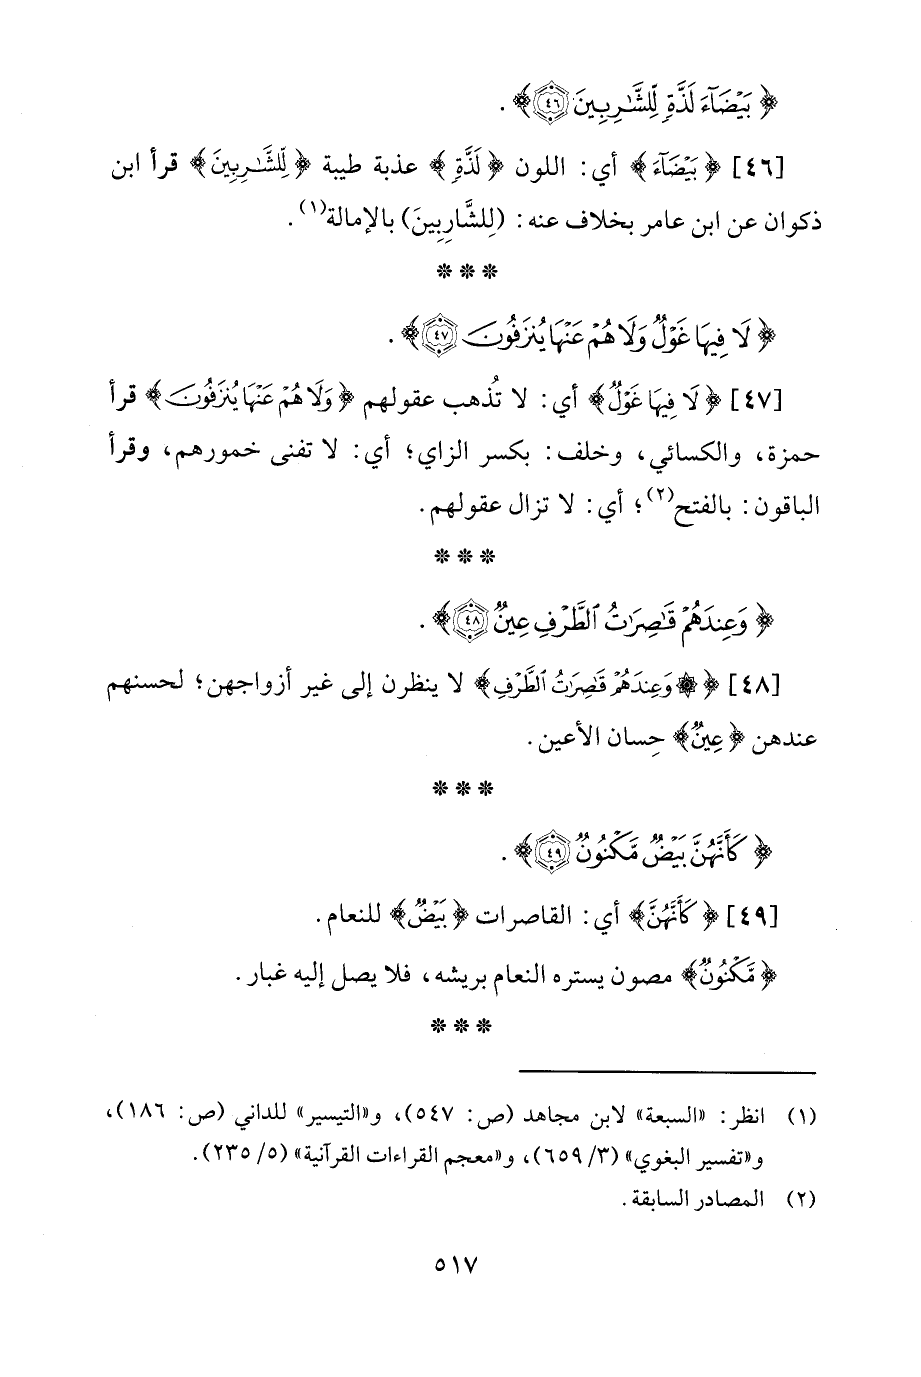 ﴿ بَيْضَآءَ لَذَّةٍ لِّلشَّٰرِبِينَ ٤٦ ﴾ .
[٤٦] ﴿ بَيْضَآءَ ﴾ أي: اللون ﴿ لَذَّةٍ ﴾ عذبة طيبة ﴿ لِّلشَّٰرِبِينَ ﴾ قرأ ابن
ذكوان عن ابن عامر بخلاف عنه: (لِلشَّارِبِينَ) بالإمالة(١).
* * *
﴿ لَا فِيهَا غَوْلٌ وَلَا هُمْ عَنْهَا يُنزَفُونَ ٤٧ ﴾ .
[٤٧] ﴿ لَا فِيهَا غَوْلٌ ﴾ أي: لا تُذهب عقولهم ﴿ وَلَا هُمْ عَنْهَا يُنزَفُونَ ﴾ قرأ
حمزة، والكسائي، وخلف: بكسر الزاي؛ أي: لا تفنى خمورهم، وقرأ
الباقون: بالفتح(٢)؛ أي: لا تزال عقولهم.
* * *
﴿ وَعِندَهُمْ قَٰصِرَٰتُ ٱلطَّرْفِ عِينٌ ٤٨ ﴾ .
[٤٨] ﴿ ۞ وَعِندَهُمْ قَٰصِرَٰتُ ٱلطَّرْفِ ﴾ لا ينظرن إلى غير أزواجهن؛ لحسنهم
عندهن ﴿ عِينٌ ﴾ حِسان الأعين.
* * *
﴿ كَأَنَّهُنَّ بَيْضٌ مَّكْنُونٌ ٤٩ ﴾ .
[٤٩] ﴿ كَأَنَّهُنَّ ﴾ أي: القاصرات ﴿ بَيْضٌ ﴾ للنعام.
﴿ مَّكْنُونٌ ﴾ مصون يستره النعام بريشه، فلا يصل إليه غبار.
* * *
(١) انظر: «السبعة» لابن مجاهد (ص: ٥٤٧)، و«التيسير» للداني (ص: ١٨٦)،
و«تفسير البغوي» (٣/ ٦٥٩)، و«معجم القراءات القرآنية» (٥/ ٢٣٥).
(٢) المصادر السابقة.
٥١٧